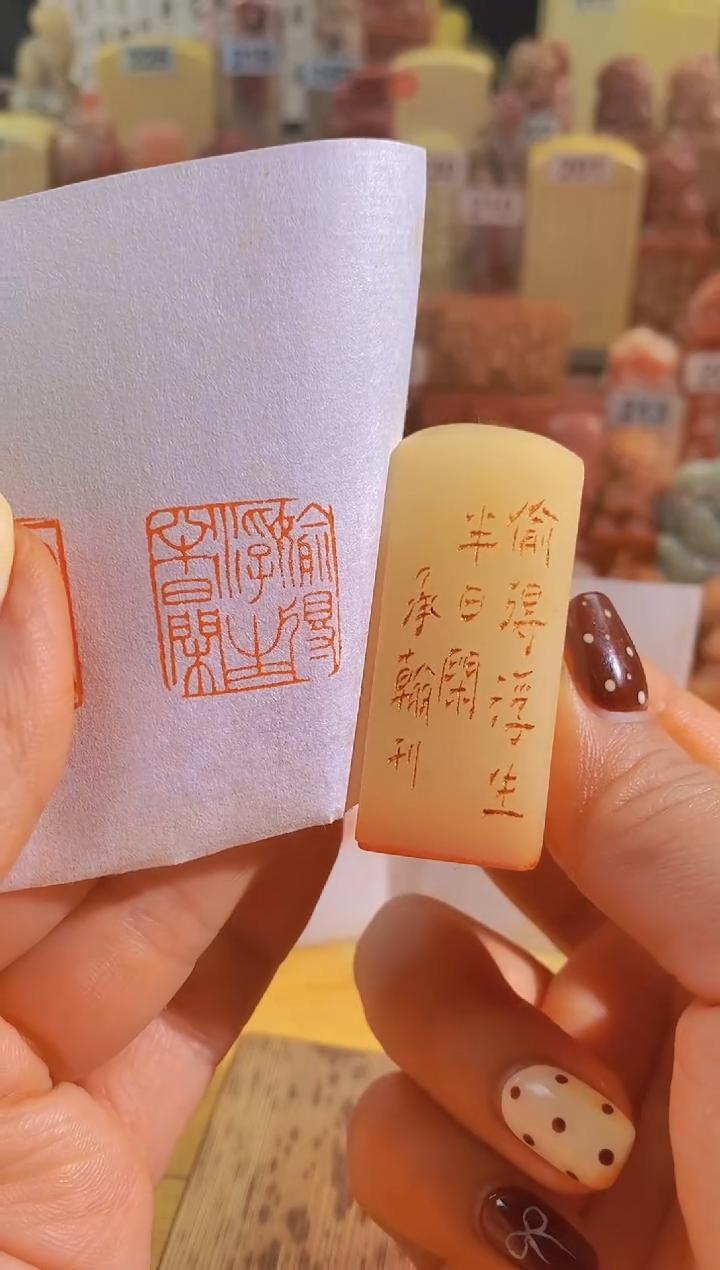 偷得
浮生
半日閑
偷得浮生
半日閑
承翰刊